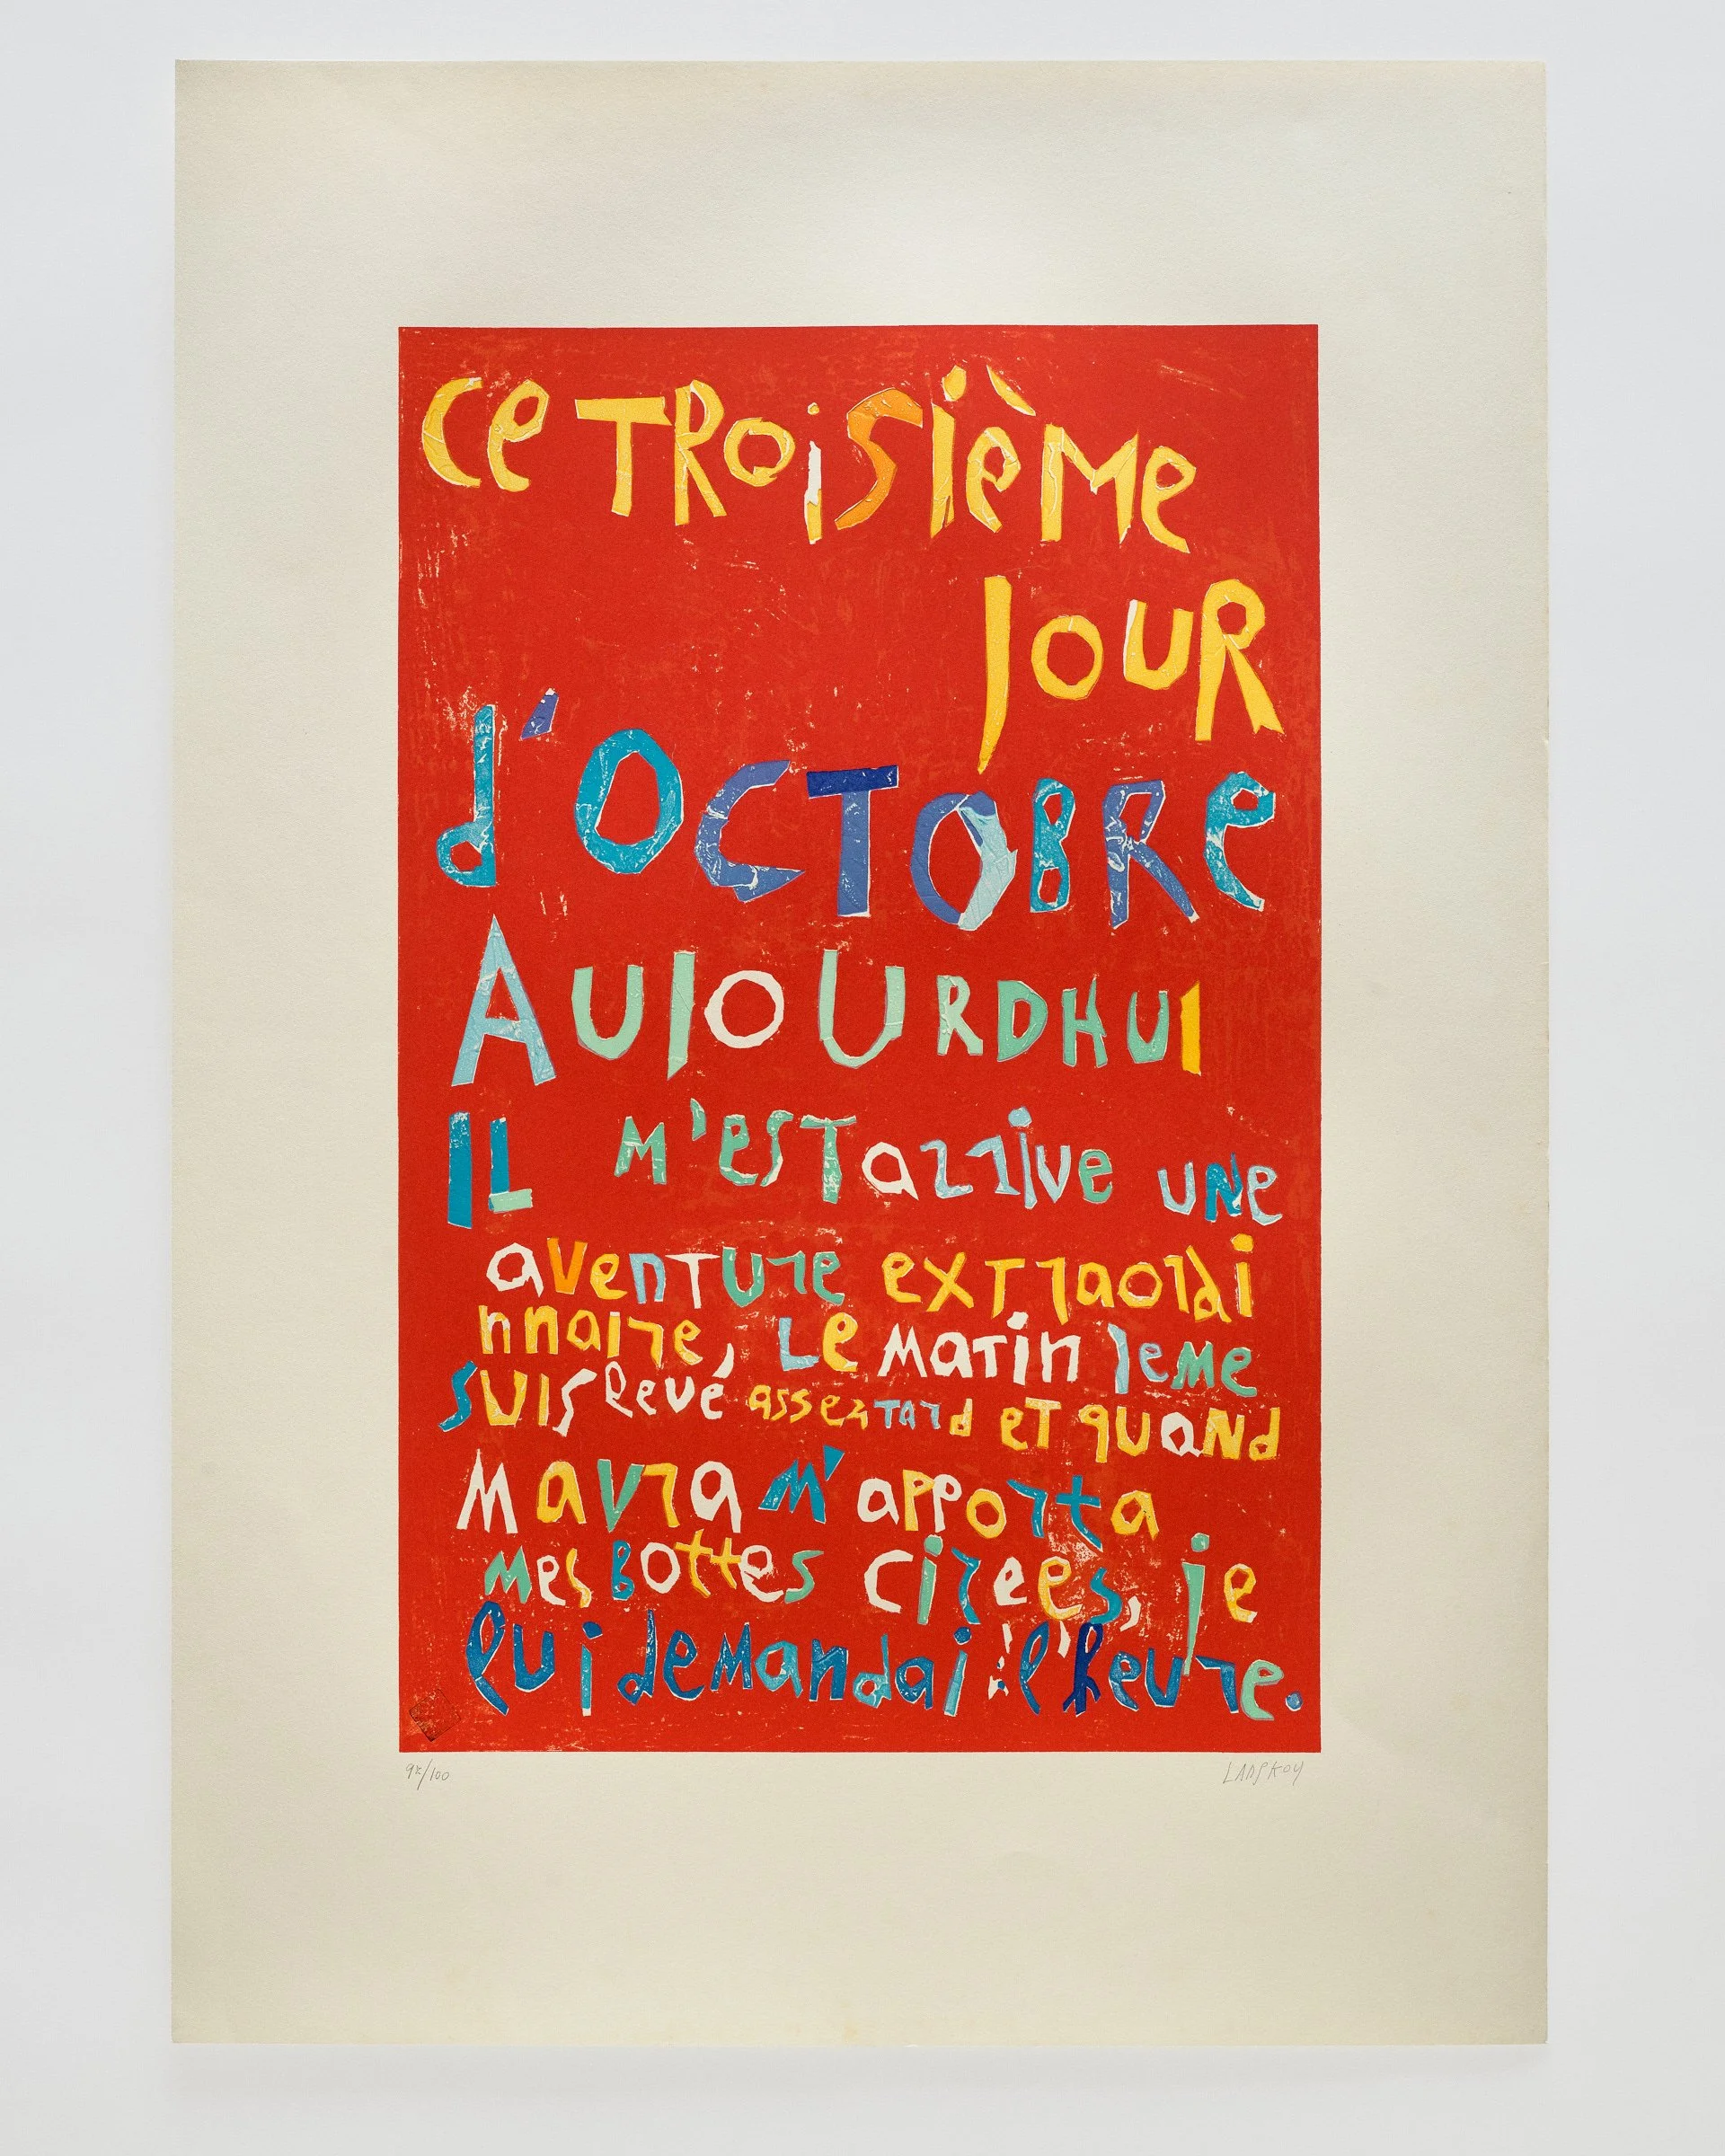 Ce TRoisième
jouR
d'OCTOBRe
AUJOURDHUI
IL m'esT arrive une
aventure extraordi
nnaire, Le matin jeme
suis levé assez tard et quand
mavra m'apporta
mes bottes cirées, je
lui demandai l heure.
/100 LAPSKOY